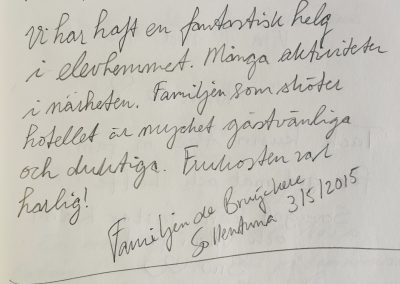 Vi har haft en fantastisk helg
i elevhemmet. Många aktiviteter
i närheten. Familjen som sköter
hotellet är mycket gästvänliga
och duktiga. Frukosten var
harlig!
Familjen de Bruyckere
Sollentuna 3/5/2015